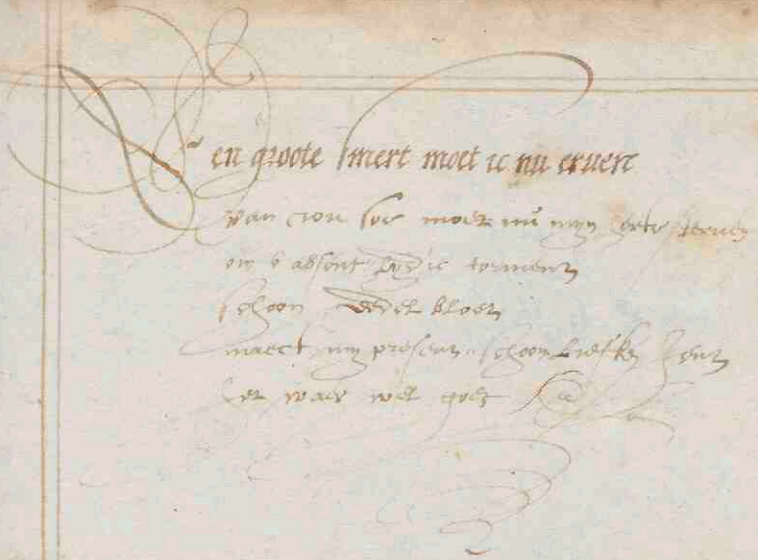 en groote smert moet ic nu erven
van rou soe moet nu myn herte sterven
om v absent lyd ic torment
schoon edel bloet
maect my present schoon liefken jent
het waer wel goet